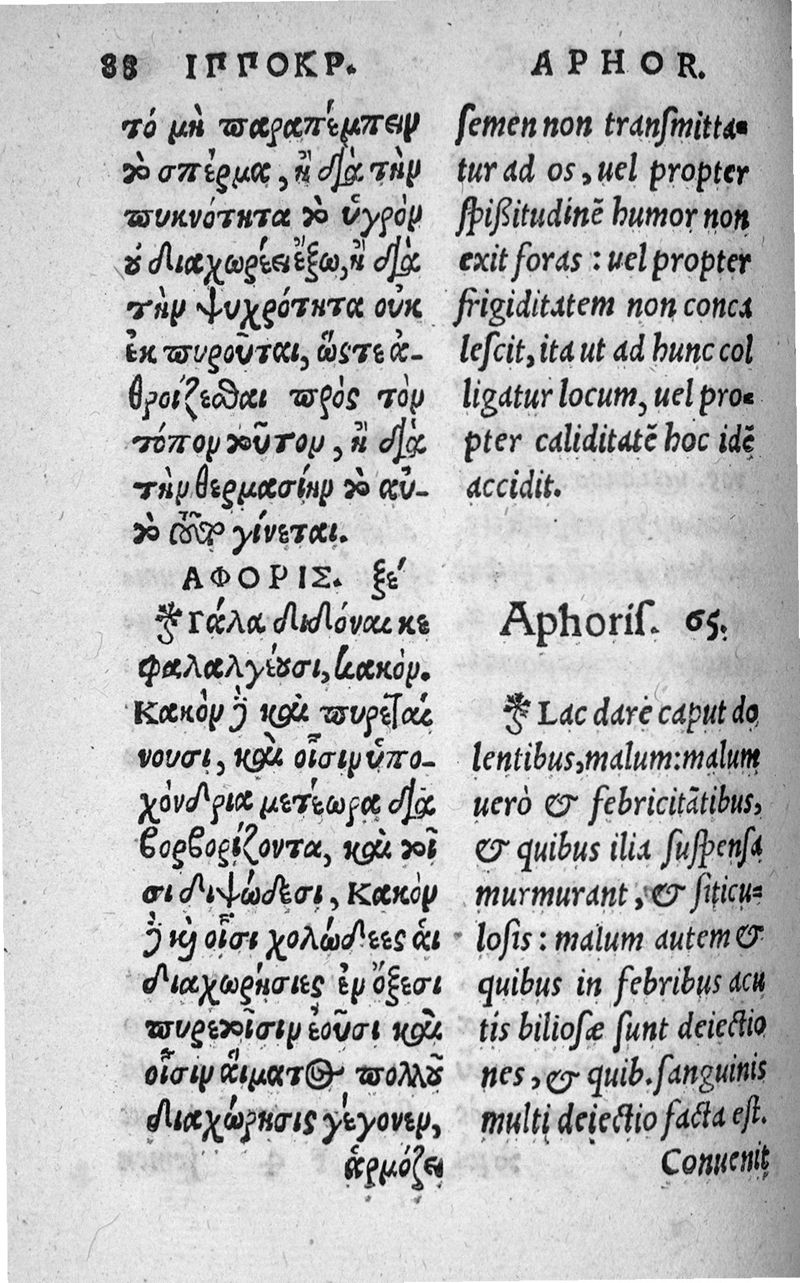 88 ΙΠΠΟΚΡ.
τό μὴ παραπέμπειν
τὸ σπέρμα, ἢ διὰ τὴν
πυκνότητα τὸ ὑγρὸν
οὐ διαχωρέει ἔξω, ἢ διὰ
τὴν ψυχρότητα οὐκ
ἐκπυροῦται, ὥστε ἀ-
θροίζεσθαι πρὸς τὸν
τόπον τοῦτον, ἢ διὰ
τὴν θερμασίην τὸ αὐ-
τὸ τοῦτο γίνεται.
ΑΦΟΡΙΣ. ξέ
Γάλα διδόναι κε
φαλαλγέουσι, κακόν.
Κακὸν δὲ καὶ πυρεταί
νουσι, καὶ οἷσιν ὑπο-
χόνδρια μετέωρα δια
βορβορίζοντα, καὶ τοῖ
σι διψώδεσι, Κακὸν
δὲ καὶ οἷσι χολώδεες αἱ
διαχωρήσιες ἐν ὄξεσι
πυρετοῖσιν ἐοῦσι καὶ
οἷσιν αἵματος πολλοῦ
διαχώρησις γέγονεν,
ἁρμόζει
APHOR.
semen non transmitta-
tur ad os, uel propter
spißitudinē humor non
exit foras : uel propter
frigiditatem non conca
lescit, ita ut ad hunc col
ligatur locum, uel pro-
pter caliditatē hoc idē
accidit.
Aphoris. 65.
Lac dare caput do
lentibus, malum: malum
uerò & febricitātibus,
& quibus ilia suspensa
murmurant, & siticu-
losis : malum autem &
quibus in febribus acu
tis biliosæ sunt deiectio
nes, & quib. sanguinis
multi deiectio facta est.
Conuenit